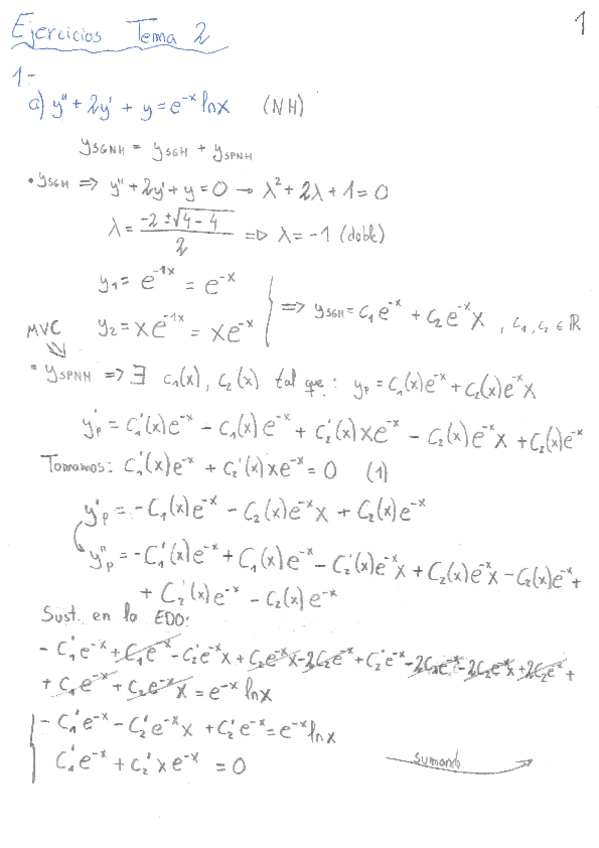 1
Ejercicios Tema 2
1-
a) y'' + 2y' + y = e^{-x} lnx (NH)
y_{SGNH} = y_{SGH} + y_{SPNH}
• y_{SGH} => y'' + 2y' + y = 0 → λ² + 2λ + 1 = 0
λ = (-2 ± √(4-4))/2 => λ = -1 (doble)
y₁ = e^{-1x} = e^{-x}
y₂ = xe^{-1x} = xe^{-x} } => y_{SGH} = C₁e^{-x} + C₂e^{-x}x , C₁, C₂ ∈ ℝ
MVC
• y_{SPNH} => ∃ C₁(x), C₂(x) tal que: y_p = C₁(x)e^{-x} + C₂(x)e^{-x}x
y'_p = C₁'(x)e^{-x} - C₁(x)e^{-x} + C₂'(x)xe^{-x} - C₂(x)e^{-x}x + C₂(x)e^{-x}
Tomamos: C₁'(x)e^{-x} + C₂'(x)xe^{-x} = 0 (1)
y'_p = -C₁(x)e^{-x} - C₂(x)e^{-x}x + C₂(x)e^{-x}
y''_p = -C₁'(x)e^{-x} + C₁(x)e^{-x} - C₂'(x)e^{-x}x + C₂(x)e^{-x}x - C₂(x)e^{-x} +
+ C₂'(x)e^{-x} - C₂(x)e^{-x}
Sust. en la EDO:
- C₁'e^{-x} + C₁e^{-x} - C₂'e^{-x}x + C₂e^{-x}x - 2C₂e^{-x} + C₂'e^{-x} - 2C₁e^{-x} - 2C₂e^{-x}x + 2C₂e^{-x} +
+ C₁e^{-x} + C₂e^{-x}x = e^{-x} lnx
- C₁'e^{-x} - C₂'e^{-x}x + C₂'e^{-x} = e^{-x} lnx
C₁'e^{-x} + C₂'xe^{-x} = 0
sumando